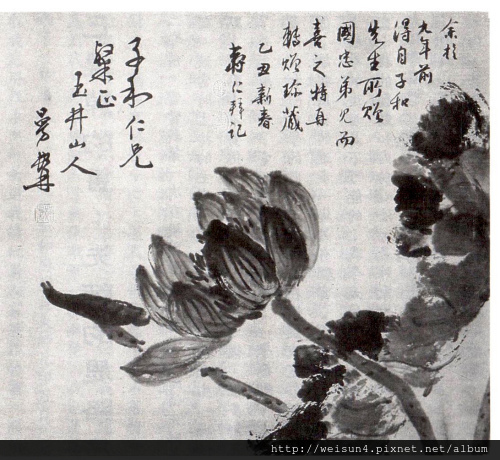 余於
九年前
得自子和
先生所贈
國忠弟見而
喜之特再
轉贈珍藏
乙丑新春
壽仁拜記
子和仁兄
粲正
玉井山人
http://weisun4.pixnet.net/album